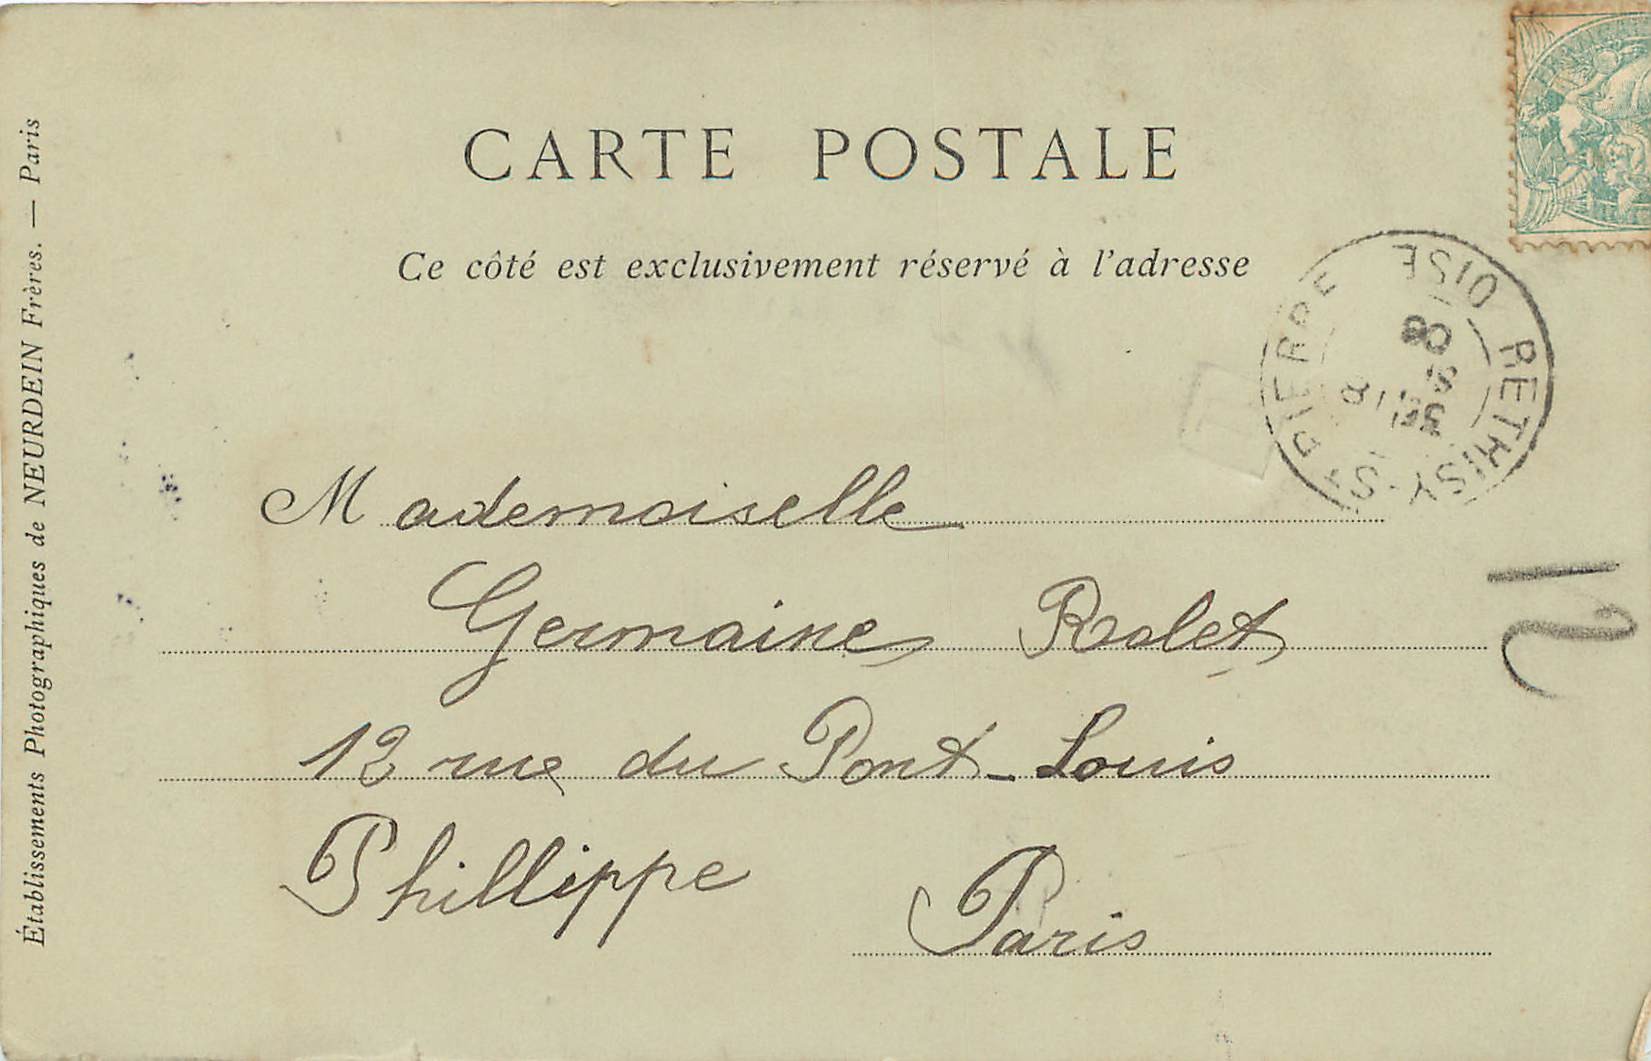 CARTE POSTALE
Ce côté est exclusivement réservé à l'adresse
Établissements Photographiques de NEURDEIN Frères. — Paris
RETHISY-ST PIERRE OISE
8
Mademoiselle
Germaine Rolet
12 rue du Pont-Louis
Phillippe
Paris
12